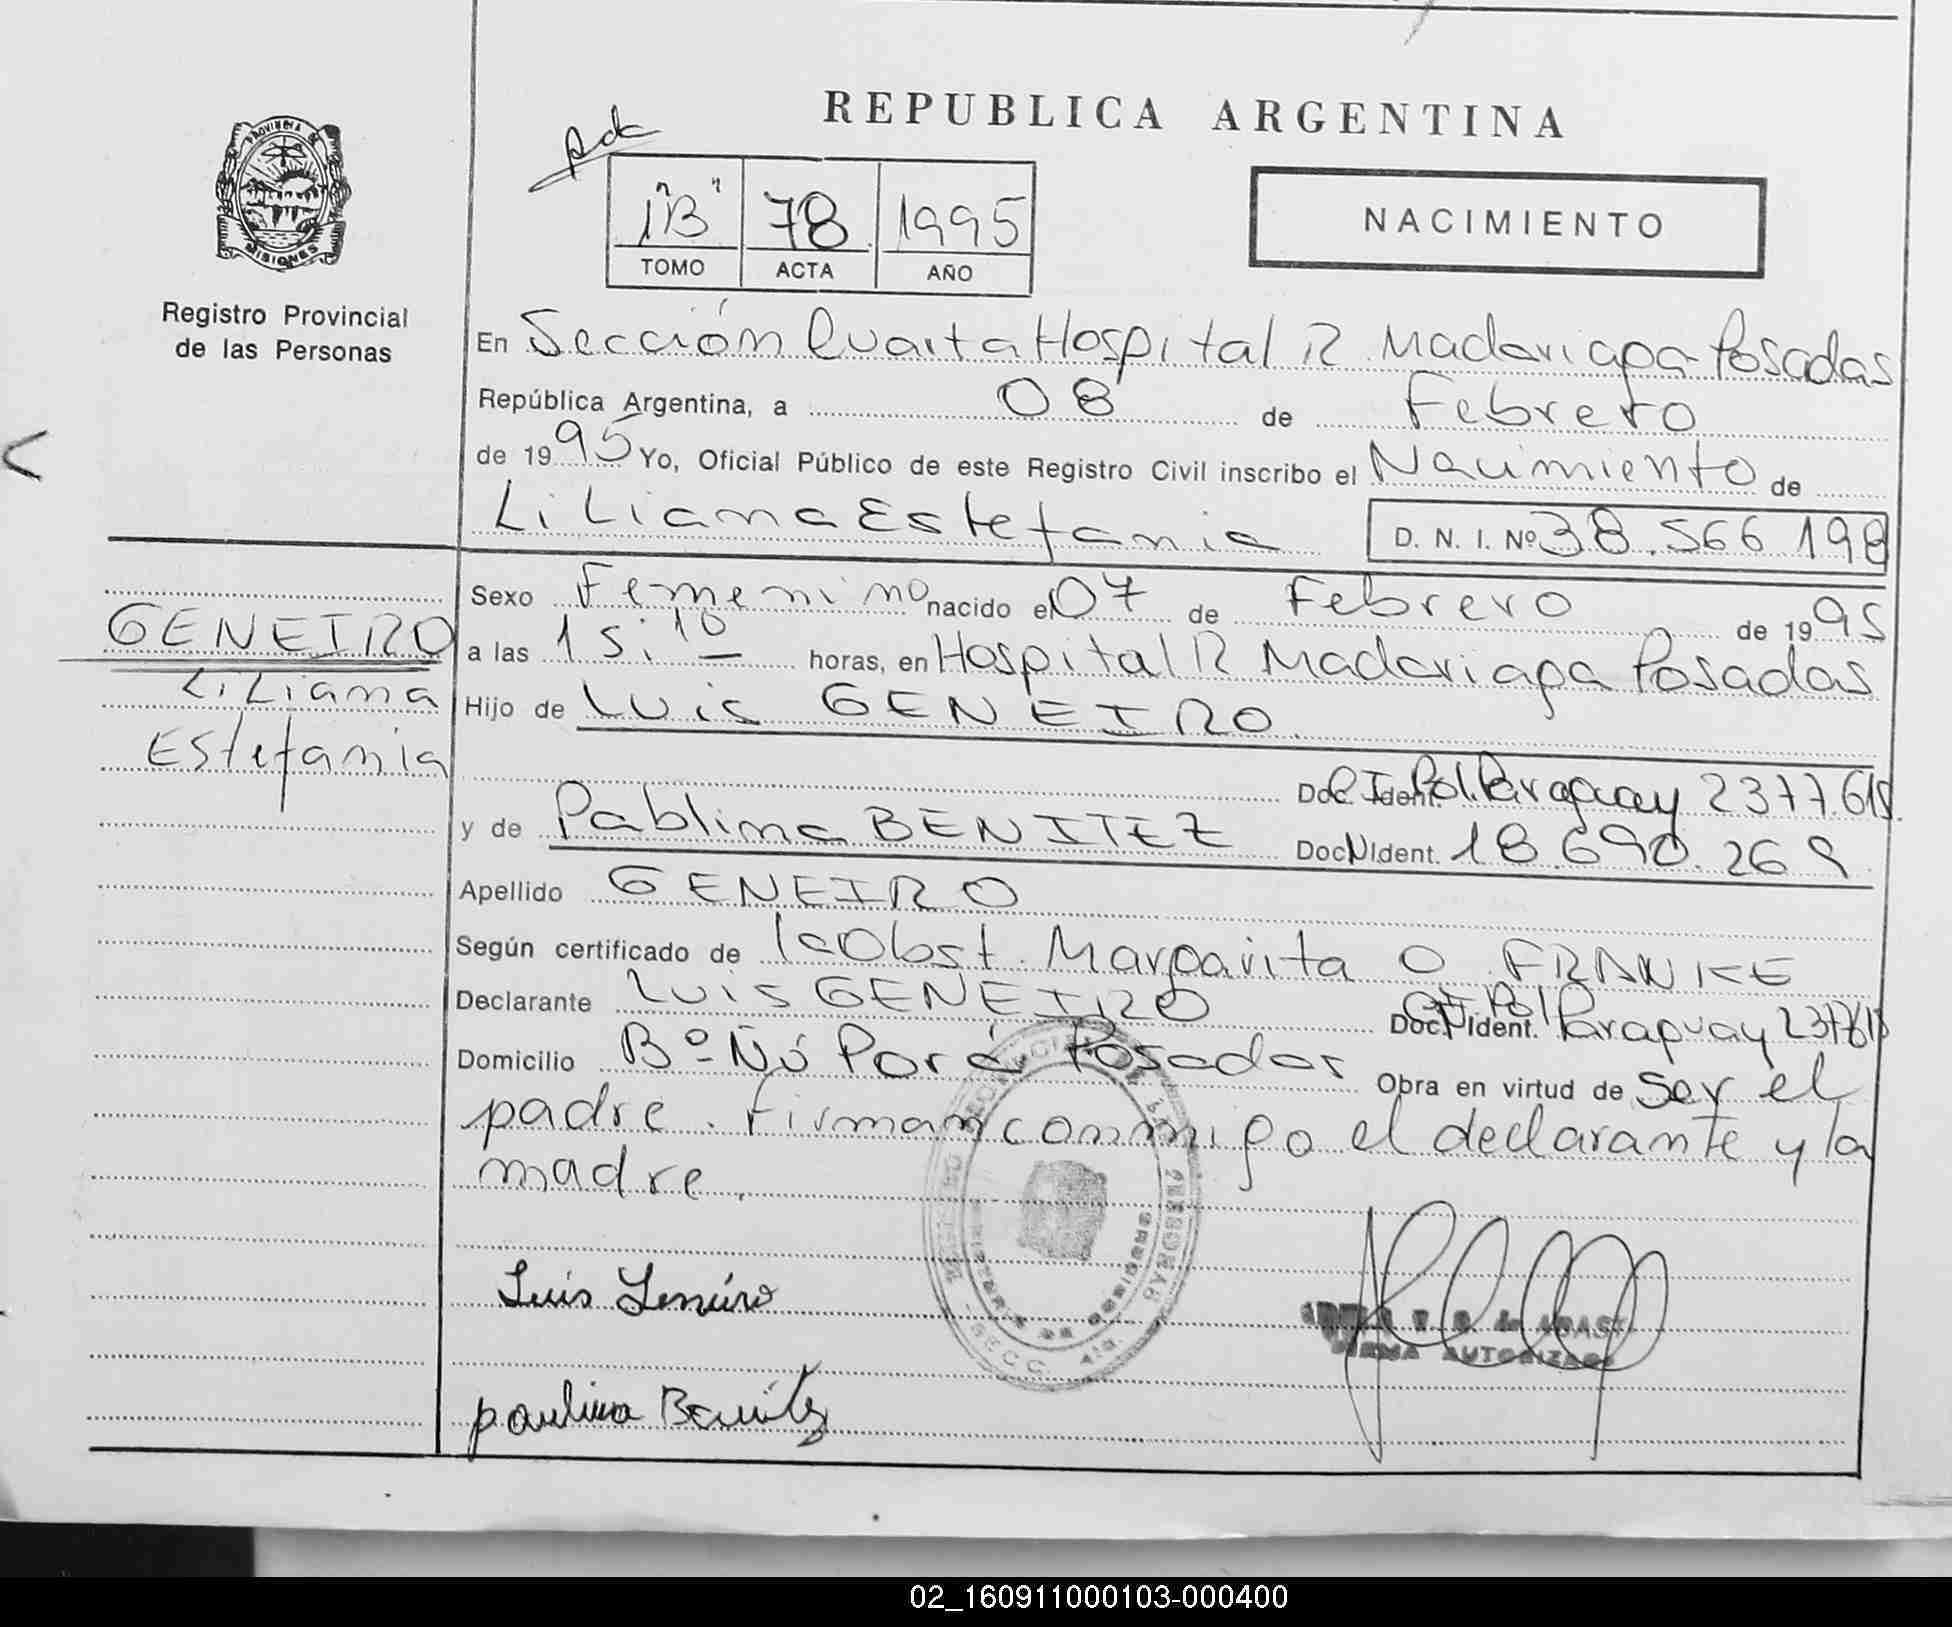 REPUBLICA ARGENTINA
PROVINCIA DE
MISIONES
"B" 78 1995
TOMO ACTA AÑO
NACIMIENTO
Registro Provincial
de las Personas
En Sección Cuarta Hospital R Madariaga Posadas
República Argentina, a 08 de Febrero
de 1995 Yo, Oficial Público de este Registro Civil inscribo el Nacimiento de
Liliana Estefania D. N. I. Nº 38.566 198
GENEIRO
Liliana
Estefania
Sexo Femenino nacido el 07 de Febrero de 1995
a las 15:10 horas, en Hospital R Madariaga Posadas
Hijo de Luis GENEIRO
Doc. Ident. C.I. Pol. Paraguay 2377.618
y de Pablina BENITEZ Doc. N Ident. 18.690.269
Apellido GENEIRO
Según certificado de la Obst. Margarita O FRANKE
Declarante Luis GENEIRO Doc. Ident. C.I. Pol Paraguay 2377618
Domicilio Bº Ñú Porá Posadas Obra en virtud de ser el
padre. Firman conmigo el declarante y la
madre.
Luis Geneiro
FIRMA AUTORIZADA
paulina Benitez
SECC. 4ta.
02_160911000103-000400